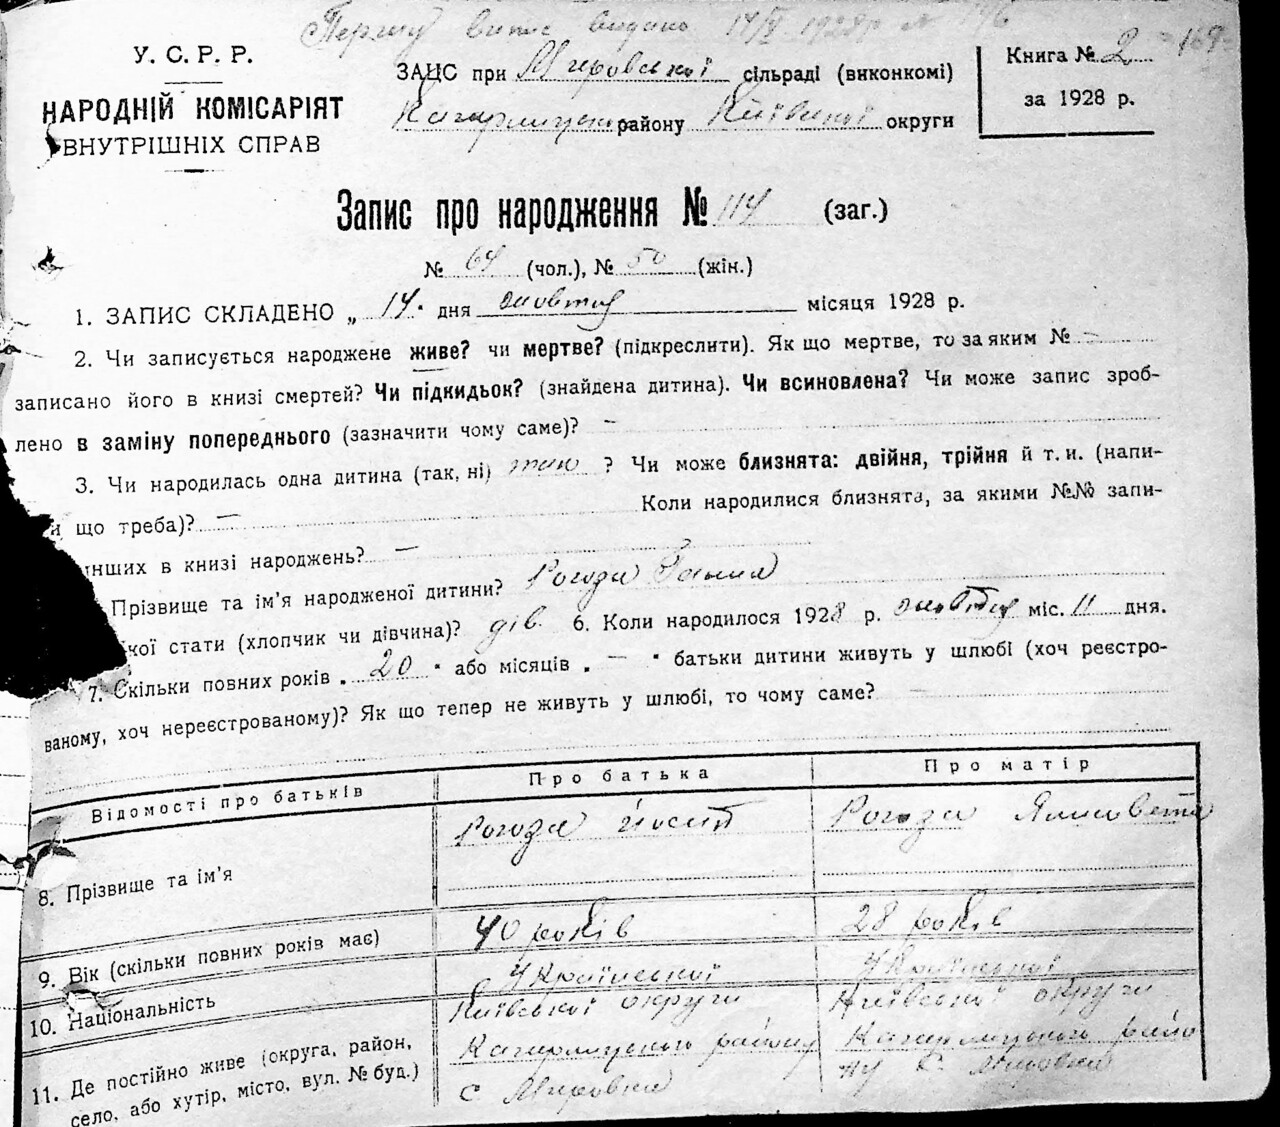 Першу випис видано 14/ 1928 р №
У. С. Р. Р.
НАРОДНІЙ КОМІСАРІЯТ
ВНУТРІШНІХ СПРАВ
ЗАЦС при Мировської сільраді (виконкомі)
Кагарлицьк району Київської округи
Книга № 2
за 1928 р.
169
Запис про народження № 114 (заг.)
№ 64 (чол.), № 50 (жін.)
1. ЗАПИС СКЛАДЕНО „ 14 " дня жовтня місяця 1928 р.
2. Чи записується народжене живе? чи мертве? (підкреслити). Як що мертве, то за яким № —
записано його в книзі смертей? Чи підкидьок? (знайдена дитина). Чи всиновлена? Чи може запис зроб-
лено в заміну попереднього (зазначити чому саме)? —
3. Чи народилась одна дитина (так, ні) так ? Чи може близнята: двійня, трійня й т. и. (напи-
и що треба)? — Коли народилися близнята, за якими №№ запи-
інших в книзі народжень? —
Прізвище та ім'я народженої дитини? Рогоза Ганна
кої стати (хлопчик чи дівчина)? дів. 6. Коли народилося 1928 р. жовтня міс. 11 дня.
7. Скільки повних років „ 20 " або місяців „ — " батьки дитини живуть у шлюбі (хоч реєстро-
ваному, хоч нереєстрованому)? Як що тепер не живуть у шлюбі, то чому саме? —
Відомості про батьків Про батька Про матір
8. Прізвище та ім'я Рогоза Йосип Рогоза Ялисовета
9. Вік (скільки повних років має) 40 років 28 років
10. Національність Української Української
11. Де постійно живе (округа, район,
село, або хутір, місто, вул. № буд.)
Київської округи
Кагарлицького району
с. Мировка
Київської округи
Кагарлицького райо
ну с. Мировки